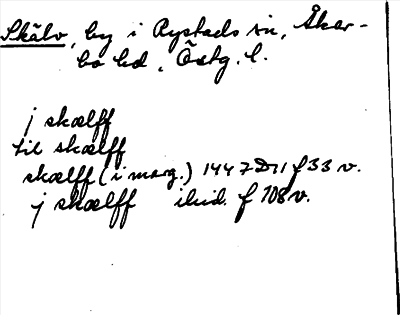 Skälv, by i Rystads sn, Åker-
bo hd, Östg. l.
j skælff
til skælff
skælff (i marg.) 1447 D 11 f 33 v.
j skælff ibid. f 108 v.